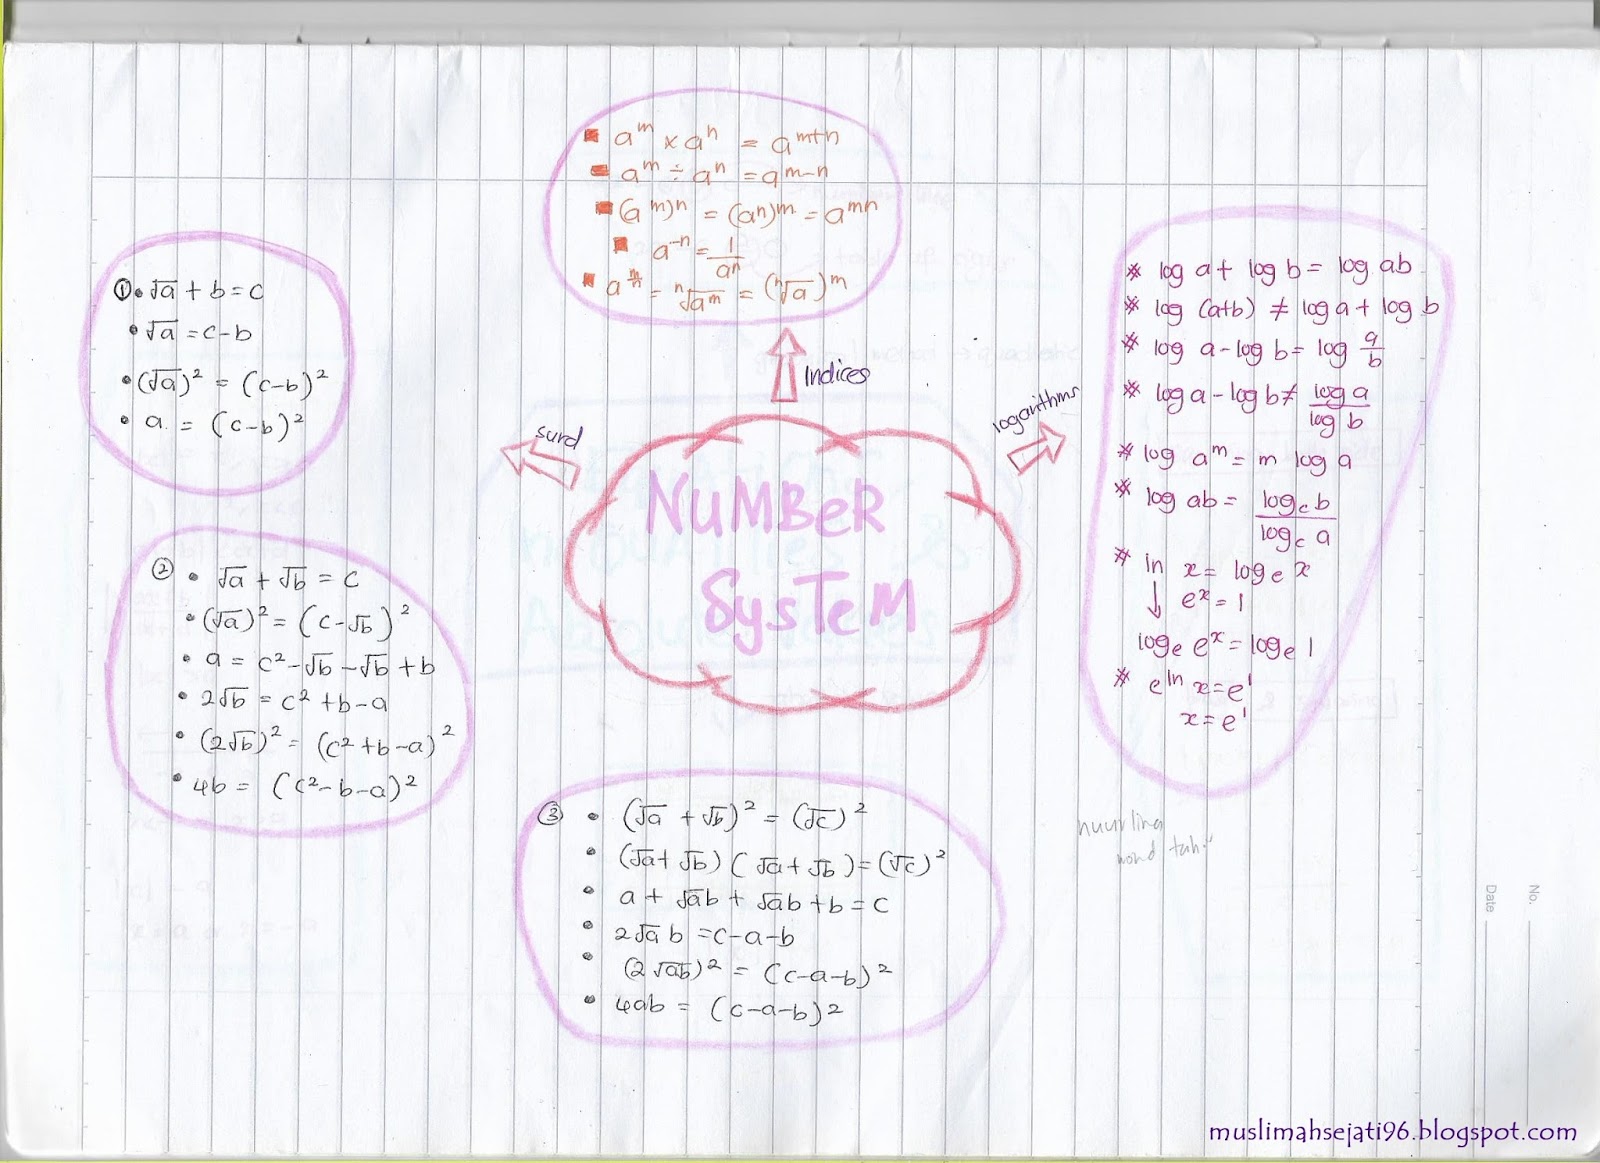 ■ a^m × a^n = a^m+n
■ a^m ÷ a^n = a^m-n
■ (a^m)^n = (a^n)^m = a^mn
■ a^-n = 1/a^n
■ a^m/n = ^n√a^m = (^n√a)^m
Indices
① • √a + b = c
• √a = c-b
• (√a)² = (c-b)²
• a = (c-b)²
surd
NUMBER
SYSTEM
logarithms
* log a + log b = log ab
* log (a+b) ≠ log a + log b
* log a - log b = log a/b
* log a - log b ≠ log a/log b
* log a^m = m log a
* log ab = log_c b/log_c a
* in x = log_e x
↓ e^x = 1
log_e e^x = log_e 1
* e^ln x = e^1
x = e^1
② • √a + √b = c
• (√a)² = (c-√b)²
• a = c² - √b - √b + b
• 2√b = c² + b - a
• (2√b)² = (c² + b - a)²
• 4b = (c² - b - a)²
③ • (√a + √b)² = (√c)²
• (√a + √b) (√a + √b) = (√c)²
• a + √ab + √ab + b = c
• 2√a b = c-a-b
• (2√ab)² = (c-a-b)²
• 4ab = (c-a-b)²
No.
Date
muslimahsejati96.blogspot.com